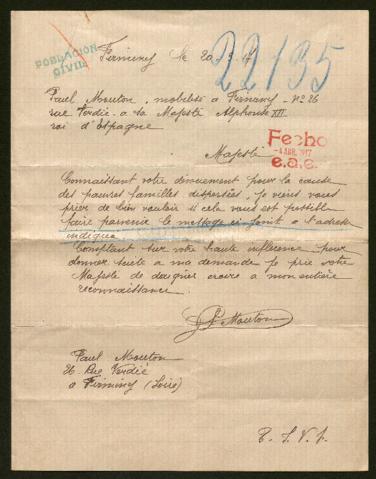 POBLACIÓN
CIVIL
Firminy le 20 3 17
22/135
Paul Mouton, mobilisé a Firminy - No 26
rue Verdié a sa Majesté Alphonse XIII
roi d'Espagne
Fecho
-4 ABR. 1917
e.a.e.
Majesté
Connaissant votre dévouement pour la cause
des pauvres familles dispersées, je viens vous
prier de bien vouloir si cela vous est possible
faire parvenir le message ci-joint a l'adresse
indiquée
Comptant sur votre haute influence pour
donner suite a ma demande je prie votre
Majesté de daigner croire a mon entière
reconnaissance.
P. Mouton
Paul Mouton
26 Rue Verdié
a Firminy (Loire)
T. S. V. P.